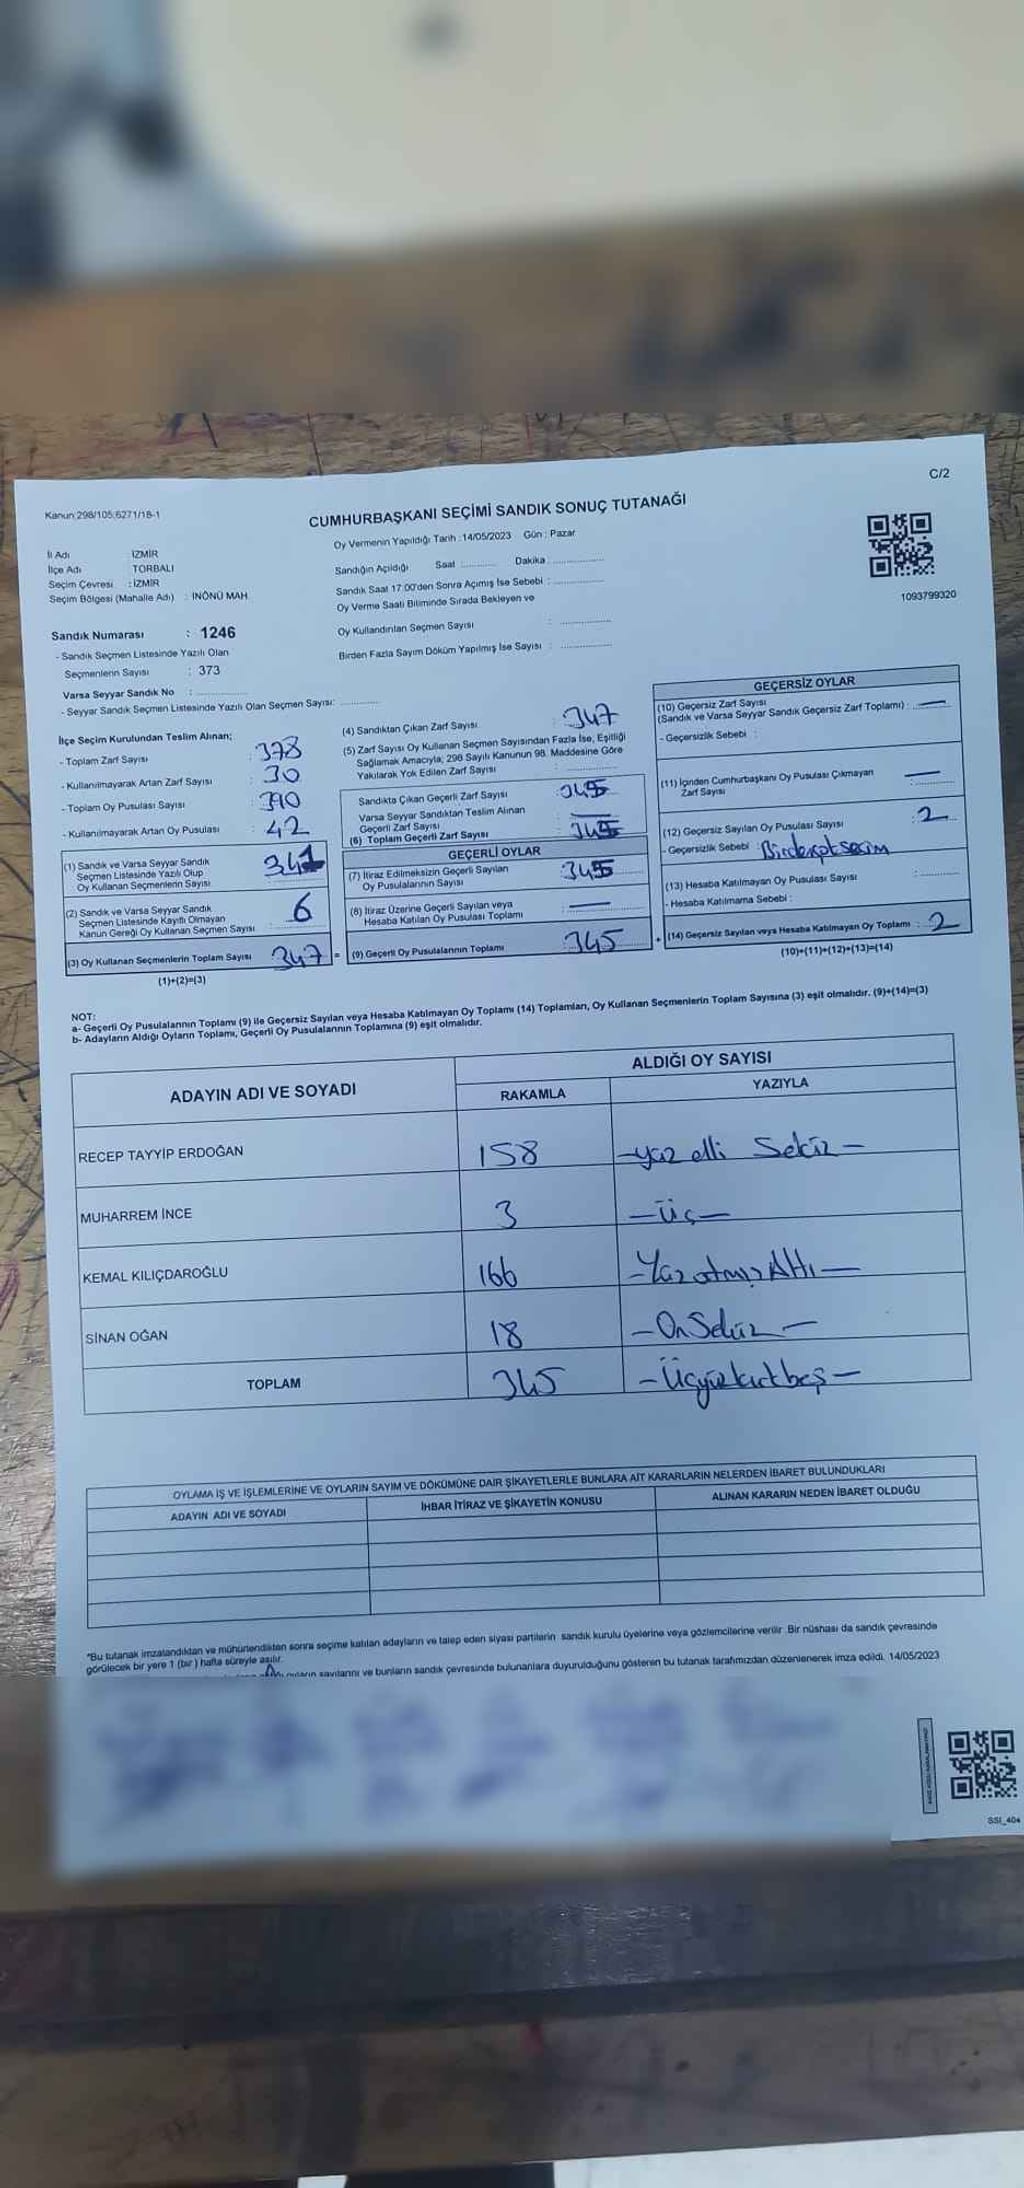 C/2
Kanun:298/105;6271/18-1
CUMHURBAŞKANI SEÇİMİ SANDIK SONUÇ TUTANAĞI
Oy Vermenin Yapıldığı Tarih :14/05/2023 Gün : Pazar
İl Adı İZMİR
İlçe Adı TORBALI
Seçim Çevresi : İZMİR
Seçim Bölgesi (Mahalle Adı) : İNÖNÜ MAH.
Sandığın Açıldığı Saat ............ Dakika ................
Sandık Saat 17:00'den Sonra Açımış İse Sebebi : ................
Oy Verme Saati Bitiminde Sırada Bekleyen ve
Oy Kullandırılan Seçmen Sayısı : ................
Birden Fazla Sayım Döküm Yapılmış İse Sayısı : ................
1093799320
Sandık Numarası : 1246
- Sandık Seçmen Listesinde Yazılı Olan
Seçmenlerin Sayısı : 373
Varsa Seyyar Sandık No : ................
- Seyyar Sandık Seçmen Listesinde Yazılı Olan Seçmen Sayısı: ............
İlçe Seçim Kurulundan Teslim Alınan;
- Toplam Zarf Sayısı : 378
- Kullanılmayarak Artan Zarf Sayısı : 30
- Toplam Oy Pusulası Sayısı : 390
- Kullanılmayarak Artan Oy Pusulası : 42
(1) Sandık ve Varsa Seyyar Sandık
Seçmen Listesinde Yazılı Olup
Oy Kullanan Seçmenlerin Sayısı : 341
(2) Sandık ve Varsa Seyyar Sandık
Seçmen Listesinde Kayıtlı Olmayan
Kanun Gereği Oy Kullanan Seçmen Sayısı : 6
(3) Oy Kullanan Seçmenlerin Toplam Sayısı 347 =
(1)+(2)=(3)
(4) Sandıktan Çıkan Zarf Sayısı : 347
(5) Zarf Sayısı Oy Kullanan Seçmen Sayısından Fazla İse, Eşitliği
Sağlamak Amacıyla; 298 Sayılı Kanunun 98. Maddesine Göre
Yakılarak Yok Edilen Zarf Sayısı : ................
Sandıkta Çıkan Geçerli Zarf Sayısı : 345
Varsa Seyyar Sandıktan Teslim Alınan
Geçerli Zarf Sayısı : —
(6) Toplam Geçerli Zarf Sayısı : 345
GEÇERLİ OYLAR
(7) İtiraz Edilmeksizin Geçerli Sayılan
Oy Pusulalarının Sayısı : 345
(8) İtiraz Üzerine Geçerli Sayılan veya
Hesaba Katılan Oy Pusulası Toplamı : —
(9) Geçerli Oy Pusulalarının Toplamı 345 +
GEÇERSİZ OYLAR
(10) Geçersiz Zarf Sayısı
(Sandık ve Varsa Seyyar Sandık Geçersiz Zarf Toplamı) : —
- Geçersizlik Sebebi :
(11) İçinden Cumhurbaşkanı Oy Pusulası Çıkmayan
Zarf Sayısı : —
(12) Geçersiz Sayılan Oy Pusulası Sayısı : 2
- Geçersizlik Sebebi : Birden çok Seçim
(13) Hesaba Katılmayan Oy Pusulası Sayısı : ............
- Hesaba Katılmama Sebebi :
(14) Geçersiz Sayılan veya Hesaba Katılmayan Oy Toplamı : 2
(10)+(11)+(12)+(13)=(14)
NOT:
a- Geçerli Oy Pusulalarının Toplamı (9) ile Geçersiz Sayılan veya Hesaba Katılmayan Oy Toplamı (14) Toplamları, Oy Kullanan Seçmenlerin Toplam Sayısına (3) eşit olmalıdır. (9)+(14)=(3)
b- Adayların Aldığı Oyların Toplamı, Geçerli Oy Pusulalarının Toplamına (9) eşit olmalıdır.
ADAYIN ADI VE SOYADI ALDIĞI OY SAYISI
RAKAMLA YAZIYLA
RECEP TAYYİP ERDOĞAN 158 -yüz elli Sekiz-
MUHARREM İNCE 3 -üç-
KEMAL KILIÇDAROĞLU 166 -Yüz atmış Altı-
SİNAN OĞAN 18 -On Sekiz-
TOPLAM 345 -Üçyüz kırk beş-
OYLAMA İŞ VE İŞLEMLERİNE VE OYLARIN SAYIM VE DÖKÜMÜNE DAİR ŞİKAYETLERLE BUNLARA AİT KARARLARIN NELERDEN İBARET BULUNDUKLARI
ADAYIN ADI VE SOYADI İHBAR İTİRAZ VE ŞİKAYETİN KONUSU ALINAN KARARIN NEDEN İBARET OLDUĞU
*Bu tutanak imzalandıktan ve mühürlendikten sonra seçime katılan adayların ve talep eden siyasi partilerin sandık kurulu üyelerine veya gözlemcilerine verilir. Bir nüshası da sandık çevresinde
görülecek bir yere 1 (bir) hafta süreyle asılır.
oyların sayılarını ve bunların sandık çevresinde bulunanlara duyurulduğunu gösteren bu tutanak tarafımızdan düzenlenerek imza edildi. 14/05/2023
SSI_404